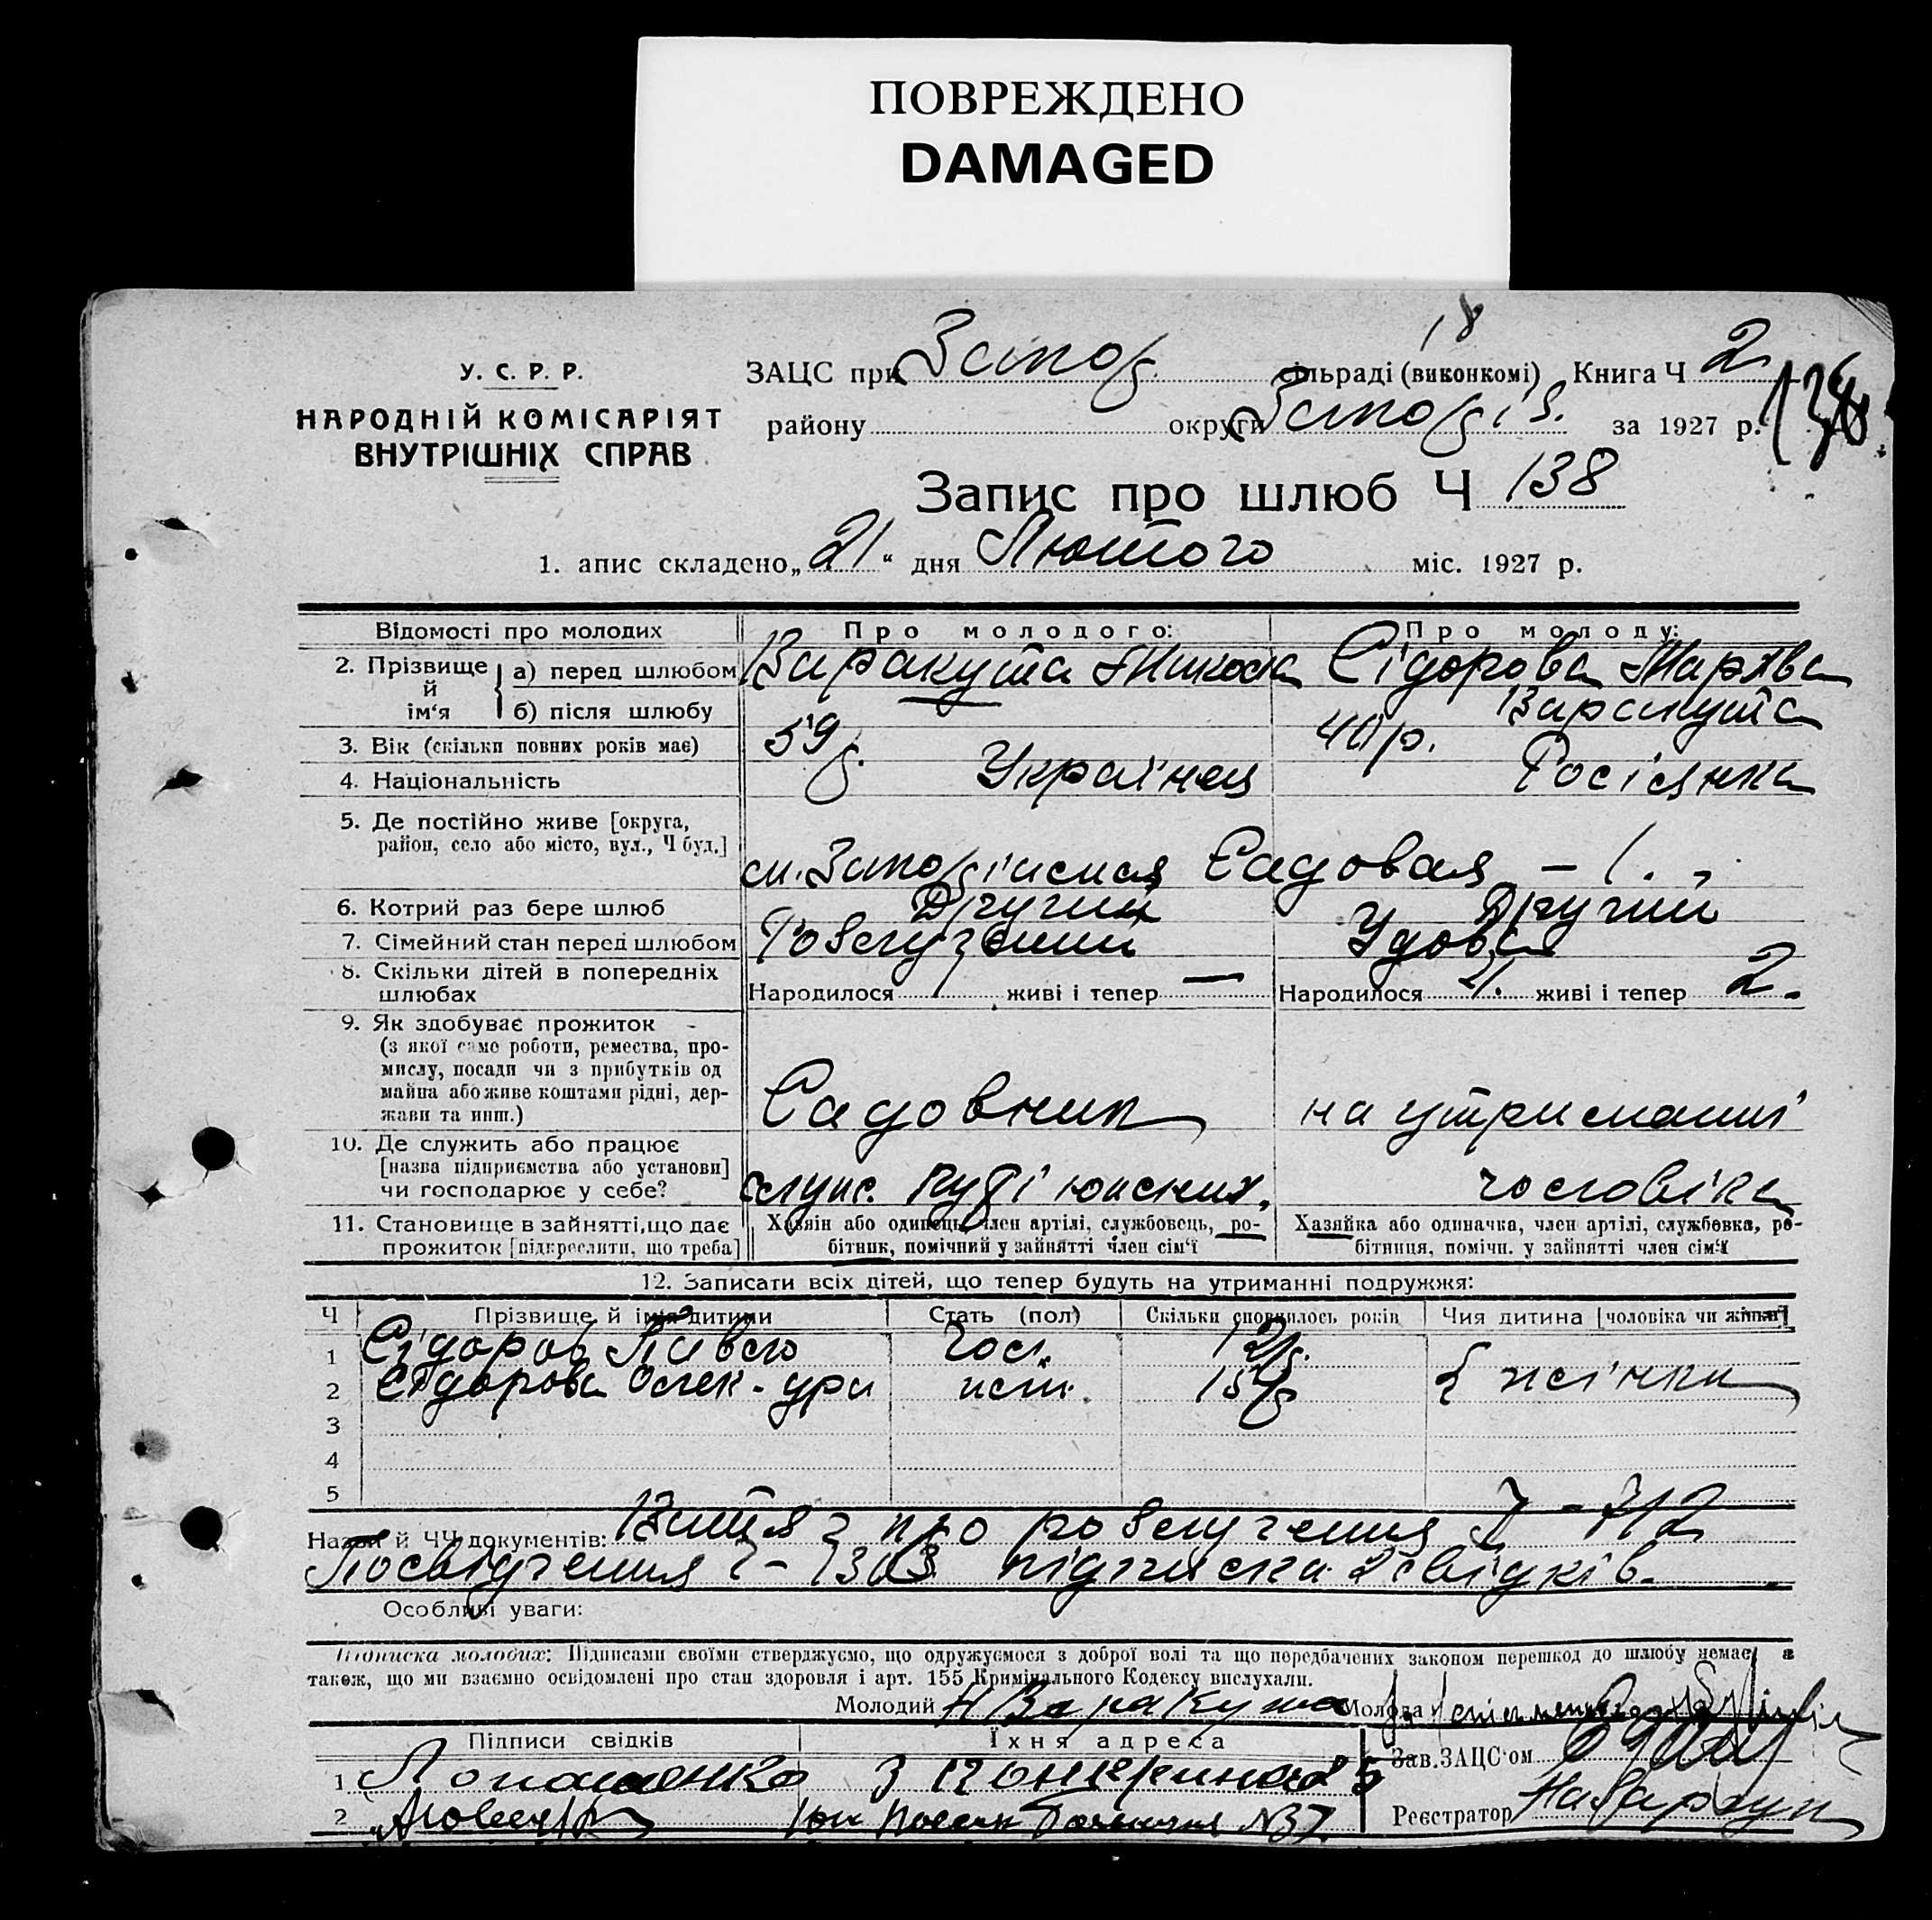 ПОВРЕЖДЕНО
DAMAGED
18
У. С. Р. Р.
НАРОДНІЙ КОМІСАРІЯТ
ВНУТРІШНІХ СПРАВ
ЗАЦС при Запор. сільраді (виконкомі) Книга Ч 2
району округи Запоріз. за 1927 р. 138
Запис про шлюб Ч 138
1. апис складено „21“ дня Лютого міс. 1927 р.
Відомості про молодих Про молодого: Про молоду:
2. Прізвище й ім‘я
а) перед шлюбом Варакута Микола Сідорова Марѳа
б) після шлюбу Варакута
3. Вік (скільки повних років має) 59 р. 40 р.
4. Національність Українец Росіянка
5. Де постійно живе [округа,
район, село або місто, вул., Ч буд.]
Садовая – 1.
6. Котрий раз бере шлюб Другий Другий
7. Сімейний стан перед шлюбом Розлучений Удова
8. Скільки дітей в попередніх
шлюбах Народилося живі і тепер — Народилося живі і тепер 2.
9. Як здобуває прожиток
(з якої саме роботи, ремества, про-
мислу, посади чи з прибутків од
майна або живе коштами рідні, дер-
жави та инш.)
Садовник на утриманні
10. Де служить або працює
[назва підприємства або установи]
чи господарює у себе?
чоловіка
11. Становище в зайнятті, що дає
прожиток [підкреслити, що треба]
Хазяін або одинець, член артілі, службовець, ро-
бітник, помічний у зайнятті член сім‘ї
Хазяйка або одиначка, член артілі, службовка, ро-
бітниця, помічн. у зайнятті член сім‘ї
12. Записати всіх дітей, що тепер будуть на утриманні подружжя:
Ч Прізвище й ім‘я дитини Стать (пол) Скільки сповнилось років Чия дитина [чоловіка чи жінки]
1 Сідоров Павло Чол. 12 р.
2 Сідорова Олек-дра жін. 15 р. } жінки
3
4
5
Назви й ЧЧ документів: Витяг про розлучення Ч – 712
Посвідчення Ч – підписка 2 свідків.
Особливі уваги:
Підписка молодих: Підписами своїми стверджуємо, що одружуємося з доброї волі та що передбачених законом перешкод до шлюбу немає, а
також, що ми взаємно освідомлені про стан здоровля і арт. 155 Кримінального Кодексу вислухали.
Молодий Н Варакута Молода
Підписи свідків Їхня адреса Зав. ЗАЦС‘ом
1
2 №37 Реєстратор